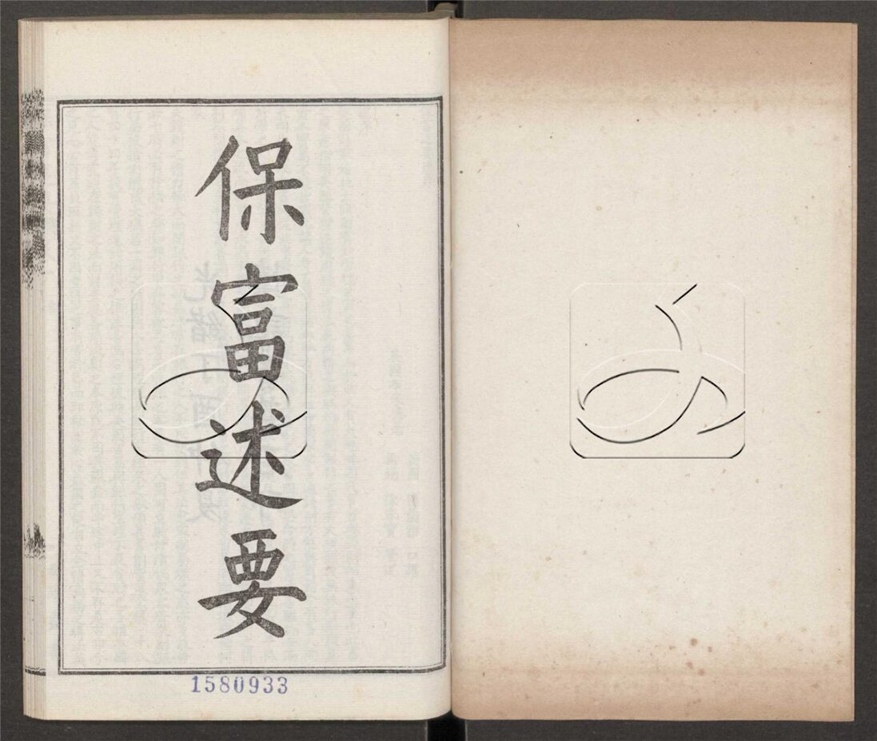 保富述要
1580933